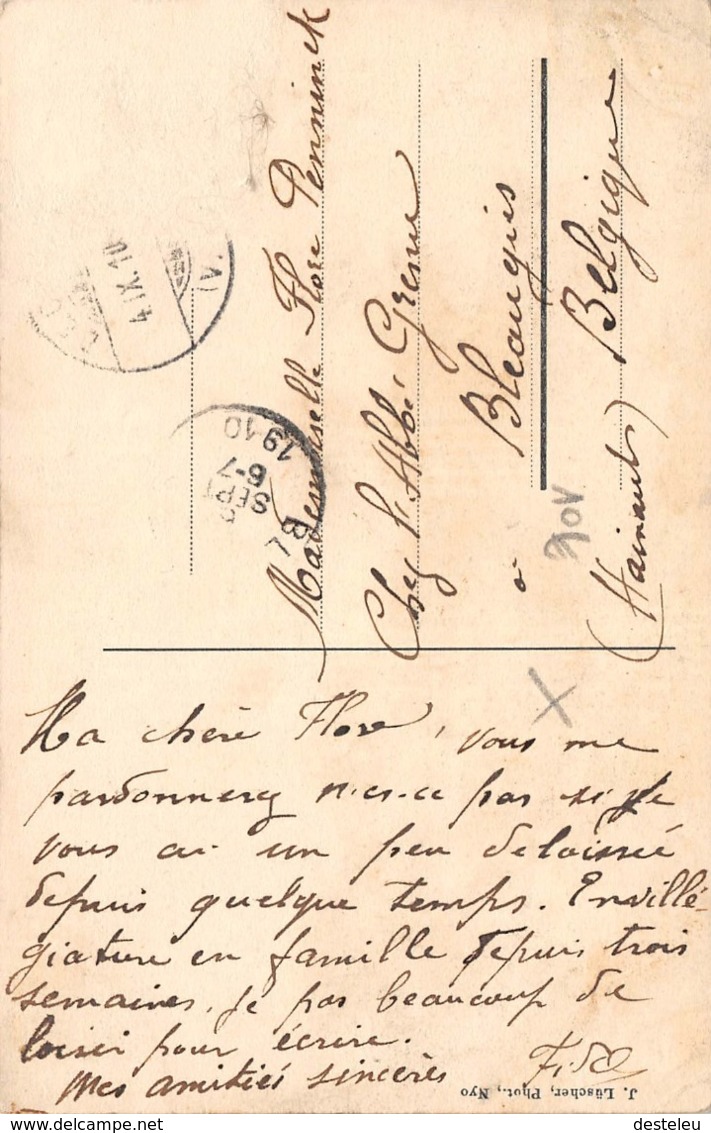 Mademoiselle Flore Penninck
Chez l'Abbé Gresne
à Bleaugies
(Hainaut) Belgique
4.IX.10
IV.
SEPT
6-7
1910
Ma chère Flore, vous me
pardonnerez n.es.ce pas si je
vous ai un peu délaissée
depuis quelque temps. En villé-
giature en famille depuis trois
semaines, je pas beaucoup de
loisir pour écrire.
Mes amitiés sincères
J. Lüscher, Phot., Nyo
delcampe
desteleu